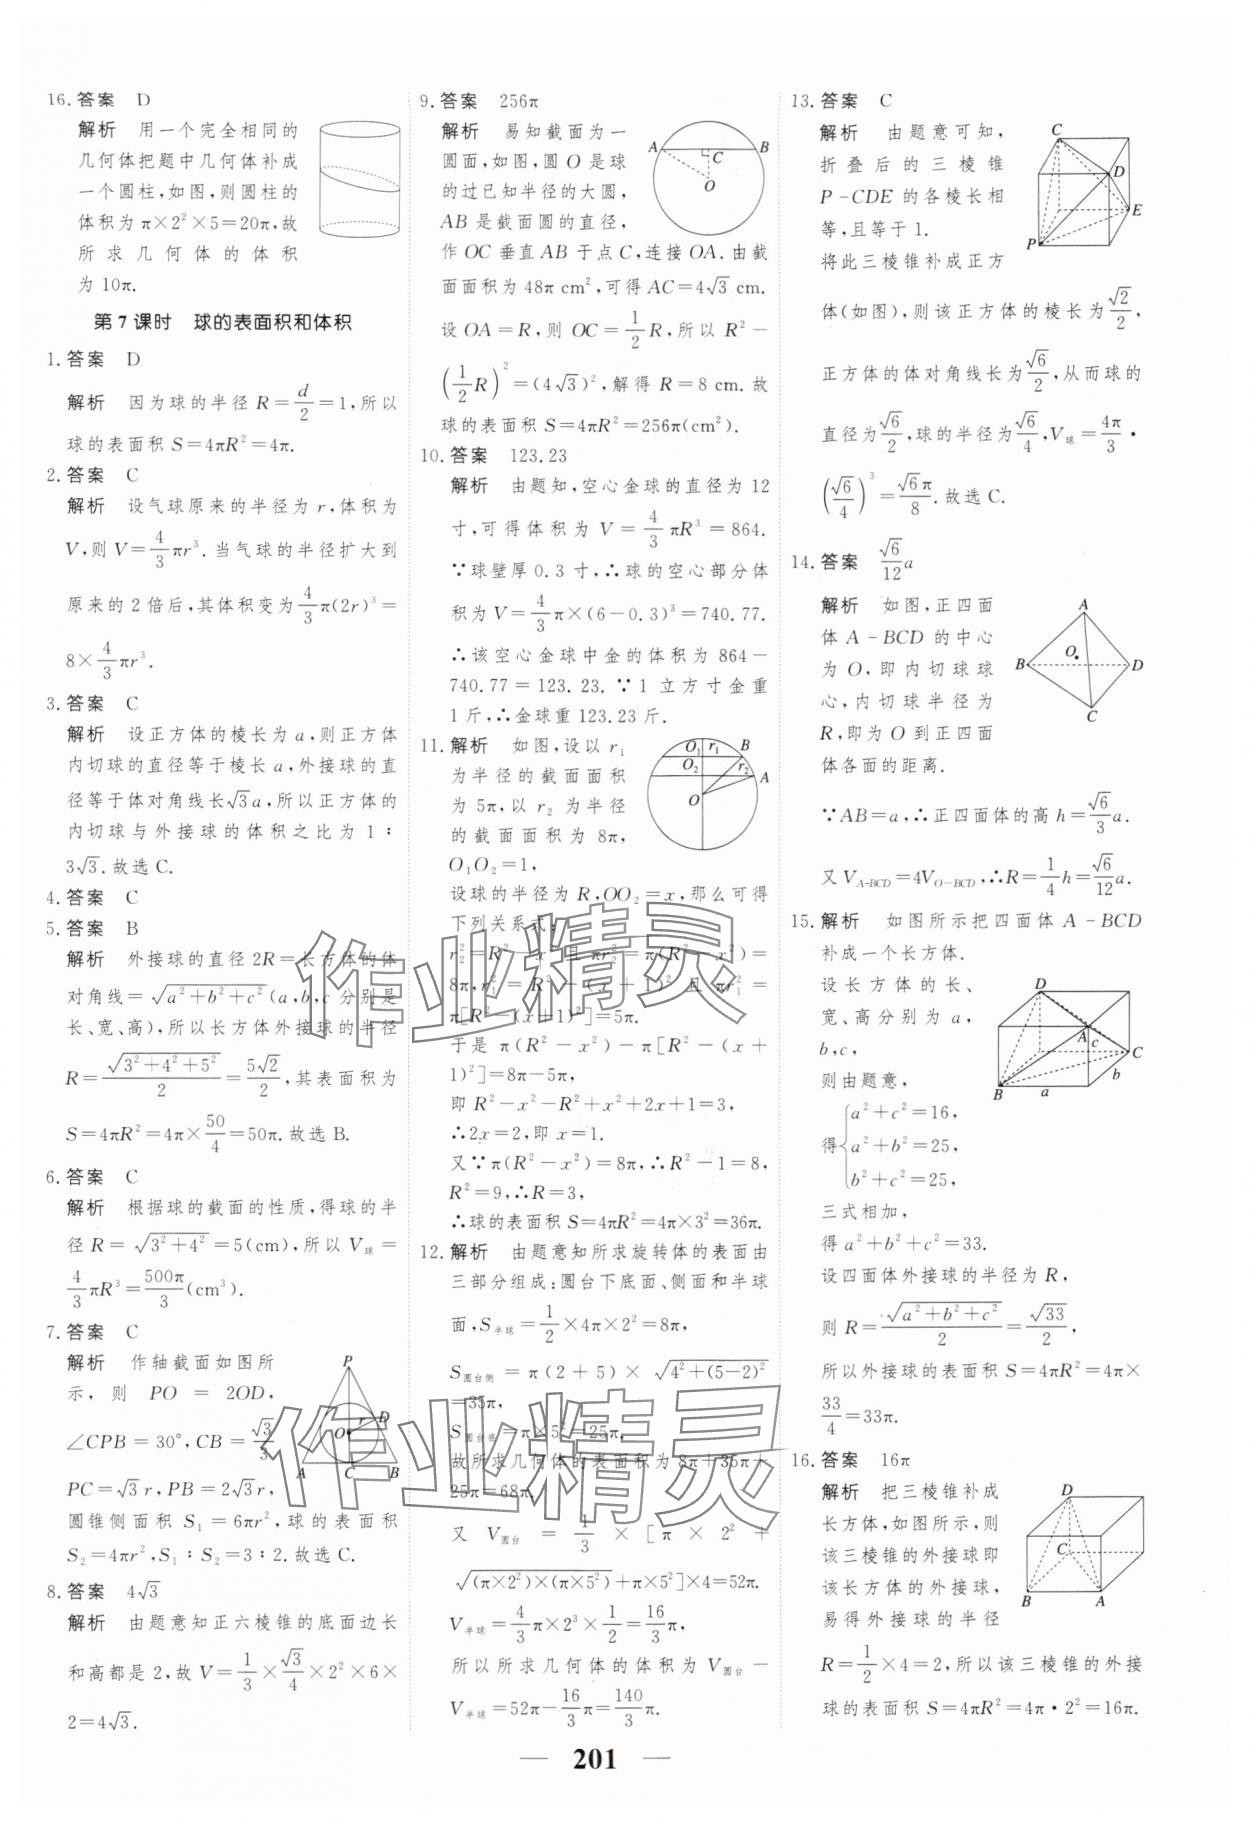 16. 答案 D
解析 用一个完全相同的
几何体把题中几何体补成
一个圆柱,如图,则圆柱的
体积为 π×2²×5=20π,故
所求几何体的体积
为 10π.
第 7 课时 球的表面积和体积
1. 答案 D
解析 因为球的半径 R=d/2=1,所以
球的表面积 S=4πR²=4π.
2. 答案 C
解析 设气球原来的半径为 r,体积为
V,则 V=4/3πr³.当气球的半径扩大到
原来的 2 倍后,其体积变为4/3π(2r)³=
8×4/3πr³.
3. 答案 C
解析 设正方体的棱长为 a,则正方体
内切球的直径等于棱长 a,外接球的直
径等于体对角线长√3a,所以正方体的
内切球与外接球的体积之比为 1∶
3√3.故选 C.
4. 答案 C
5. 答案 B
解析 外接球的直径 2R=长方体的体
对角线=√(a²+b²+c²)(a,b,c 分别是
长、宽、高),所以长方体外接球的半径
R=√(3²+4²+5²)/2=5√2/2,其表面积为
S=4πR²=4π×50/4=50π.故选 B.
6. 答案 C
解析 根据球的截面的性质,得球的半
径 R=√(3²+4²)=5(cm),所以 V球=
4/3πR³=500π/3(cm³).
7. 答案 C
解析 作轴截面如图所
示,则 PO=2OD,
∠CPB=30°,CB=√3/3
PC=√3r,PB=2√3r,
圆锥侧面积 S₁=6πr²,球的表面积
S₂=4πr²,S₁∶S₂=3∶2.故选 C.
P
r D
O
A C B
8. 答案 4√3
解析 由题意知正六棱锥的底面边长
和高都是 2,故 V=1/3×√3/4×2²×6×
2=4√3.
9. 答案 256π
解析 易知截面为一
圆面,如图,圆 O 是球
的过已知半径的大圆,
AB 是截面圆的直径,
作 OC 垂直 AB 于点 C,连接 OA.由截
面面积为 48π cm²,可得 AC=4√3 cm.
设 OA=R,则 OC=1/2R,所以 R²-
(1/2R)²=(4√3)²,解得 R=8 cm.故
球的表面积 S=4πR²=256π(cm²).
A B
C
O
10. 答案 123.23
解析 由题知,空心金球的直径为 12
寸,可得体积为 V=4/3πR³=864.
∵球壁厚 0.3 寸,∴球的空心部分体
积为 V=4/3π×(6-0.3)³=740.77.
∴该空心金球中金的体积为 864-
740.77=123.23.∵1 立方寸金重
1 斤,∴金球重 123.23 斤.
11. 解析 如图,设以 r₁
为半径的截面面积
为 5π,以 r₂ 为半径
的截面面积为 8π,
O₁O₂=1,
设球的半径为 R,OO₂=x,那么可得
下列关系式:
r₂²=R²-x² 且 πr₂²=π(R²-x²)=
8π,r₁²=R²-(x+1)² 且 πr₁²=
π[R²-(x+1)²]=5π.
于是 π(R²-x²)-π[R²-(x+
1)²]=8π-5π,
即 R²-x²-R²+x²+2x+1=3,
∴2x=2,即 x=1.
又∵π(R²-x²)=8π,∴R²-1=8,
R²=9,∴R=3,
∴球的表面积 S=4πR²=4π×3²=36π.
O₁ r₁ B
O₂ r₂ A
O
12. 解析 由题意知所求旋转体的表面由
三部分组成:圆台下底面、侧面和半球
面,S半球=1/2×4π×2²=8π,
S圆台侧=π(2+5)×√(4²+(5-2)²)
=35π,
S圆台底=π×5²=25π,
故所求几何体的表面积为 8π+35π+
25π=68π.
又 V圆台=1/3×[π×2²+
√((π×2²)×(π×5²))+π×5²]×4=52π.
V半球=4/3π×2³×1/2=16/3π,
所以所求几何体的体积为 V圆台-
V半球=52π-16/3π=140/3π.
13. 答案 C
解析 由题意可知,
折叠后的三棱锥
P-CDE 的各棱长相
等,且等于 1.
将此三棱锥补成正方
体(如图),则该正方体的棱长为√2/2,
正方体的体对角线长为√6/2,从而球的
直径为√6/2,球的半径为√6/4,V球=4π/3·
(√6/4)³=√6π/8.故选 C.
C
D
E
P
14. 答案 √6/12a
解析 如图,正四面
体 A-BCD 的中心
为 O,即内切球球
心,内切球半径为
R,即为 O 到正四面
体各面的距离.
∵AB=a,∴正四面体的高 h=√6/3a.
又 V_A-BCD=4V_O-BCD,∴R=1/4h=√6/12a.
A
B O D
C
15. 解析 如图所示把四面体 A-BCD
补成一个长方体.
设长方体的长、
宽、高分别为 a,
b,c,
则由题意,
a²+c²=16,
得{a²+b²=25,
b²+c²=25,
三式相加,
得 a²+b²+c²=33.
设四面体外接球的半径为 R,
则 R=√(a²+b²+c²)/2=√33/2,
所以外接球的表面积 S=4πR²=4π×
33/4=33π.
D
A c C
B a b
16. 答案 16π
解析 把三棱锥补成
长方体,如图所示,则
该三棱锥的外接球即
该长方体的外接球,
易得外接球的半径
R=1/2×4=2,所以该三棱锥的外接
球的表面积 S=4πR²=4π·2²=16π.
D
C
B A
作业精灵
作业精灵
— 201 —